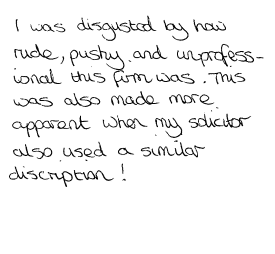 I was disgusted by how
rude, pushy and unprofess-
ional this firm was. This
was also made more
apparent when my solicitor
also used a similar
discription!